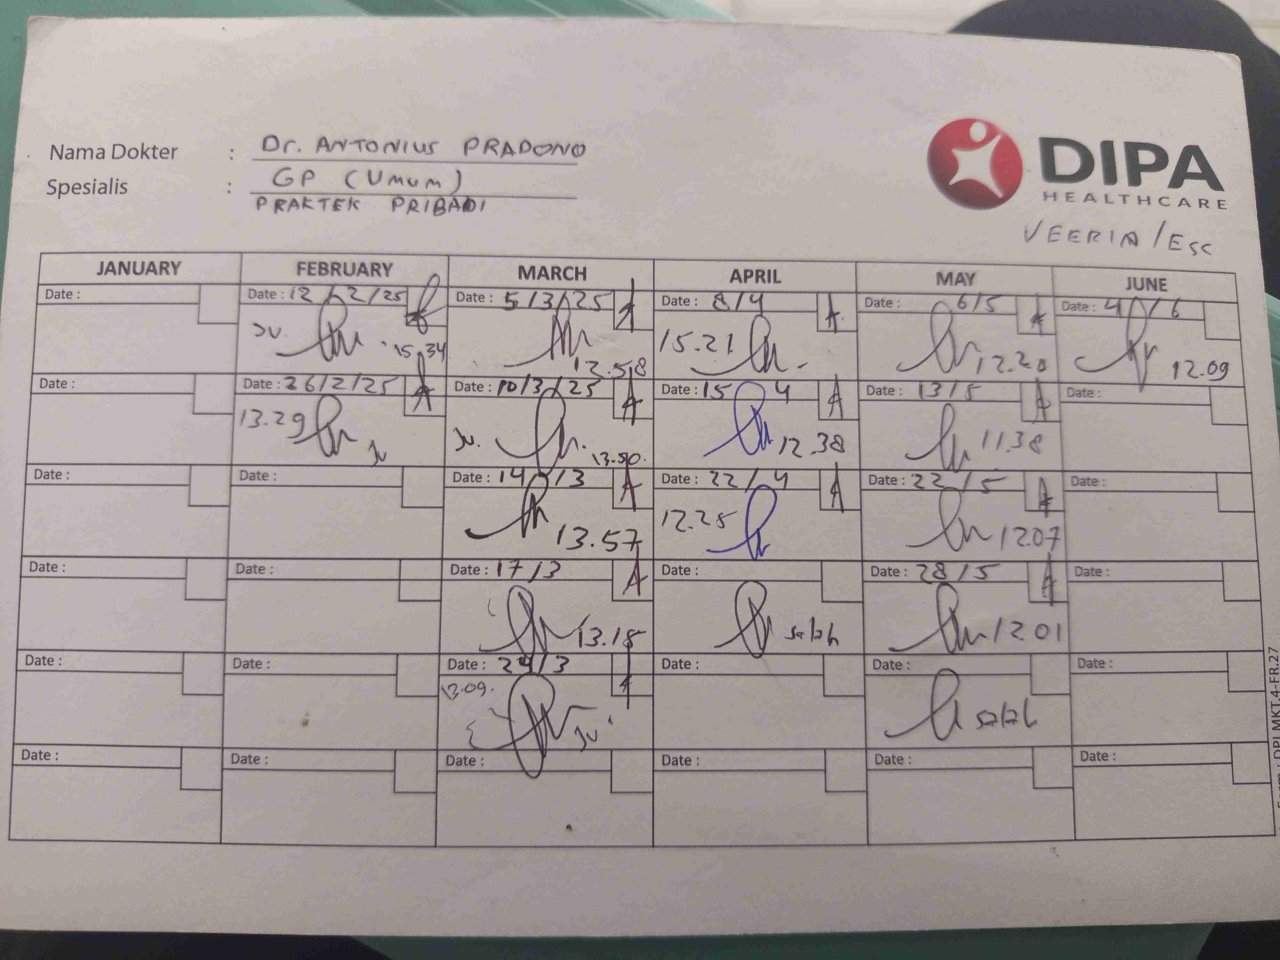 Nama Dokter : Dr. ANTONIUS PRADONO
Spesialis : GP (Umum)
PRAKTEK PRIBADI
DIPA
HEALTHCARE
VEERIA / Esc
JANUARY FEBRUARY MARCH APRIL MAY JUNE
Date : Date : 12/2/25 Date : 5/3/25 Date : 8/4 Date : 6/5 Date : 4/6
15.34 15.21 12.20 12.09
Date : Date : 26/2/25 Date : 10/3/25 Date : 15 4 Date : 13/5 Date :
13.29 13.50. 12.38 11.38
Date : Date : Date : 14/3 Date : 22/4 Date : 22/5 Date :
13.57 12.25 12.07
Date : Date : Date : 17/3 Date : Date : 28/5 Date :
13.18 salah 12.01
Date : Date : Date : 24/3 Date : Date : Date :
13.09. salah
Date : Date : Date : Date : Date : Date :
DPI.MKT.4-FR.27